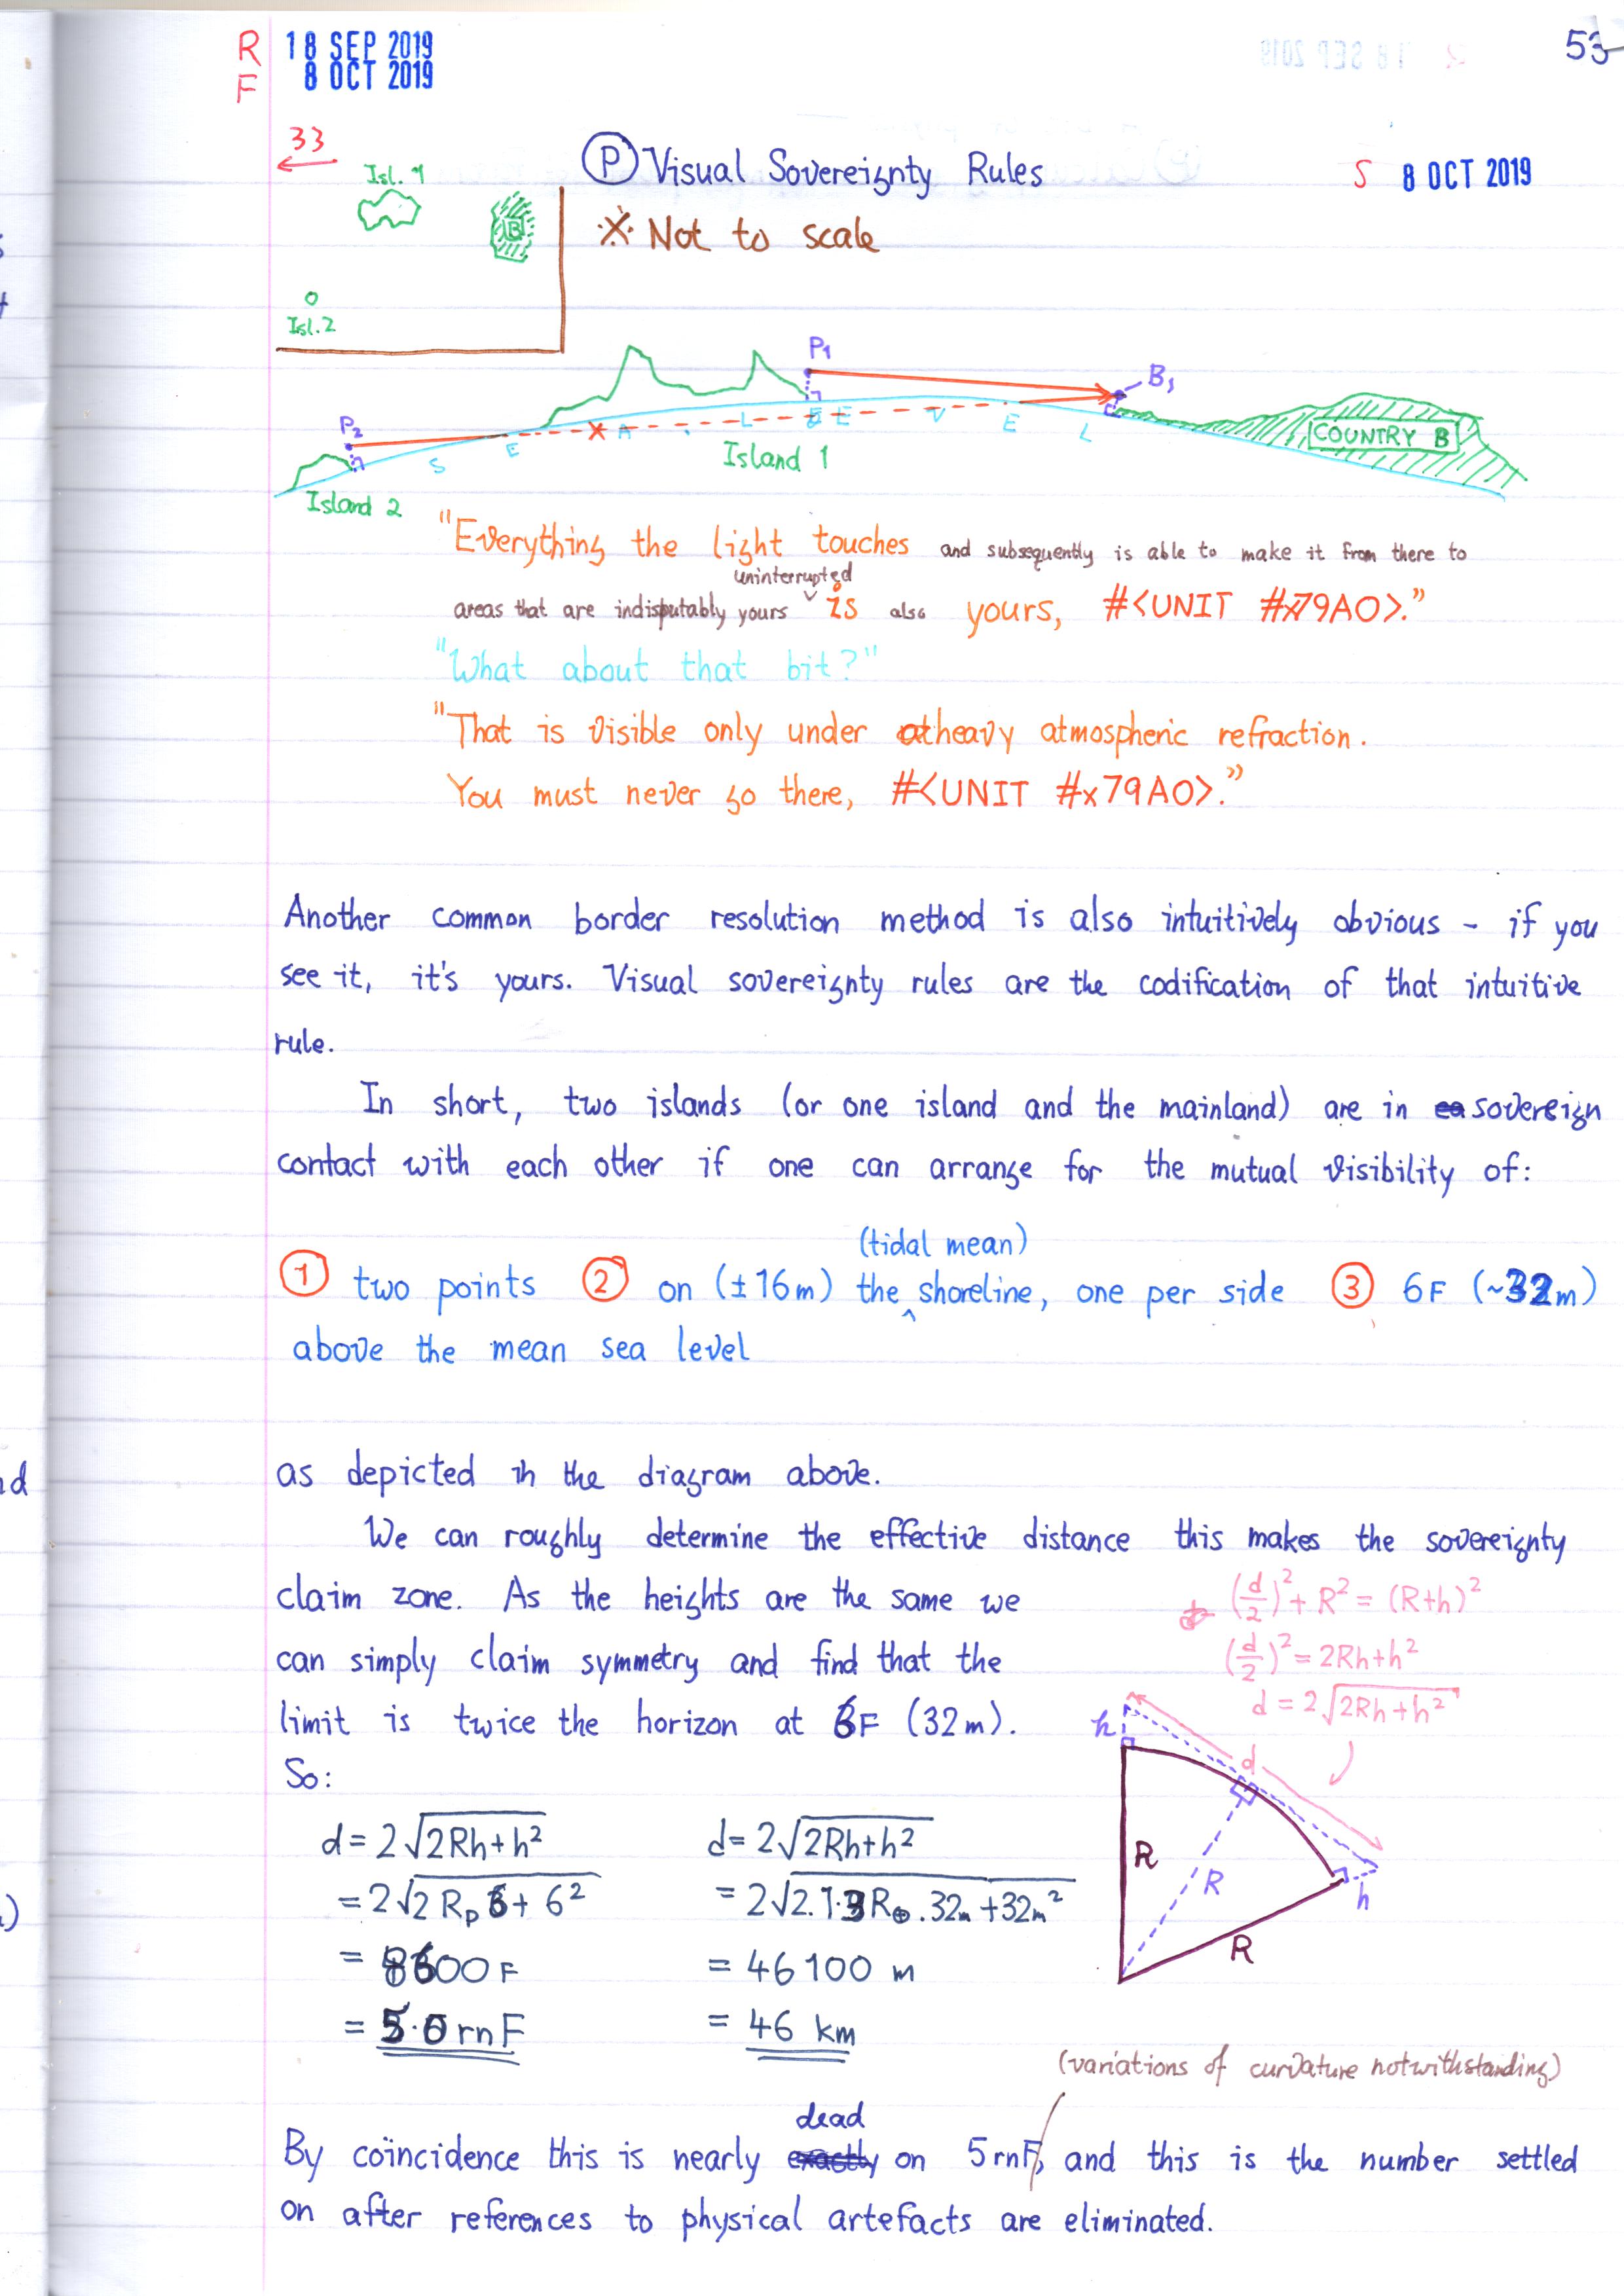 R 18 SEP 2019
F 8 OCT 2019
53
33
Ⓟ Visual Sovereignty Rules
S 8 OCT 2019
※ Not to scale
Isl. 1
B
Isl. 2
P₁
B₁
P₂
S E A L E V E L
COUNTRY B
Island 1
Island 2
"Everything the light touches and subsequently is able to make it from there to
areas that are indisputably yours uninterrupted is also yours, #<UNIT #x79A0>."
"What about that bit?"
"That is visible only under heavy atmospheric refraction.
You must never go there, #<UNIT #x79A0>."
Another common border resolution method is also intuitively obvious - if you
see it, it's yours. Visual sovereignty rules are the codification of that intuitive
rule.
In short, two islands (or one island and the mainland) are in sovereign
contact with each other if one can arrange for the mutual visibility of:
① two points ② on (±16m) the (tidal mean) shoreline, one per side ③ 6F (~32m)
above the mean sea level
as depicted in the diagram above.
We can roughly determine the effective distance this makes the sovereignty
claim zone. As the heights are the same we
can simply claim symmetry and find that the
limit is twice the horizon at 6F (32m).
So:
(d/2)² + R² = (R+h)²
(d/2)² = 2Rh+h²
d = 2√(2Rh+h²)
h
d
R
R
h
R
d = 2√(2Rh+h²)
= 2√(2 Rₚ 6 + 6²)
= 8600 F
= 5.0 rnF
d = 2√(2Rh+h²)
= 2√(2.1.3R⊕.32m+32m²)
= 46100 m
= 46 km
(variations of curvature notwithstanding)
By coïncidence this is nearly dead on 5 rnF, and this is the number settled
on after references to physical artefacts are eliminated.